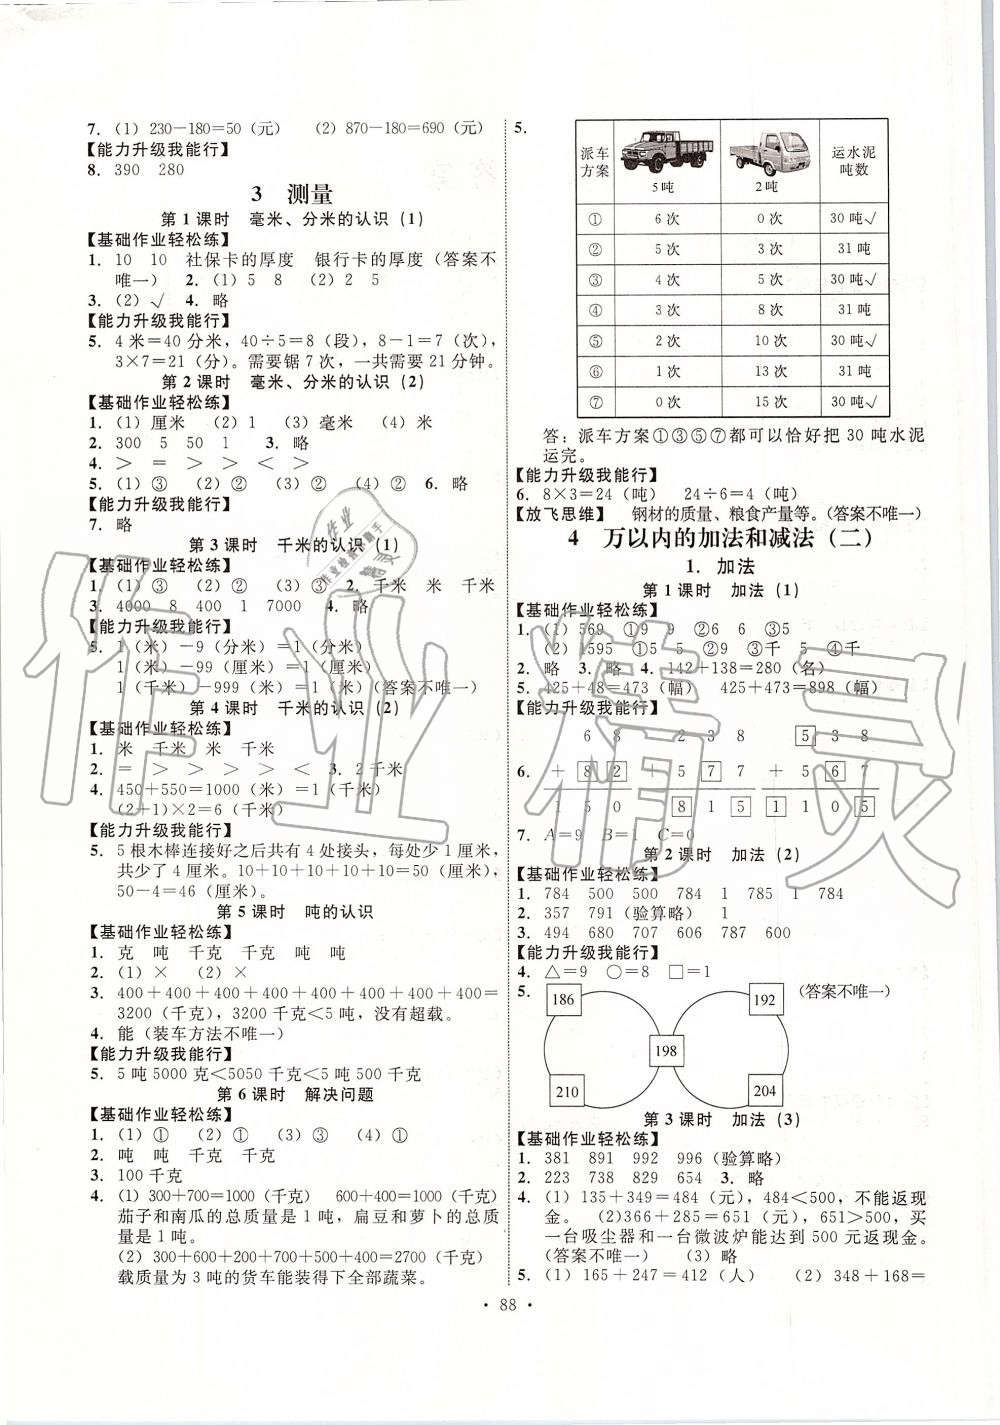 7. (1) 230－180＝50（元） (2) 870－180＝690（元）
【能力升级我能行】
8. 390 280
3 测量
第1课时 毫米、分米的认识（1）
【基础作业轻松练】
1. 10 10 社保卡的厚度 银行卡的厚度（答案不
唯一） 2. (1) 5 8 (2) 2 5
3. (2) √ 4. 略
【能力升级我能行】
5. 4米＝40分米，40÷5＝8（段），8－1＝7（次），
3×7＝21（分）。需要锯7次，一共需要21分钟。
第2课时 毫米、分米的认识（2）
【基础作业轻松练】
1. (1) 厘米 (2) 1 (3) 毫米 (4) 米
2. 300 5 50 1 3. 略
4. ＞ ＝ ＞ ＞ ＜ ＞
5. (1) ③ (2) ② (3) ② (4) ② 6. 略
【能力升级我能行】
7. 略
第3课时 千米的认识（1）
【基础作业轻松练】
1. (1) ③ (2) ② (3) ② 2. 千米 米 千米
3. 4000 8 400 1 7000 4. 略
【能力升级我能行】
5. 1（米）－9（分米）＝1（分米）
1（米）－99（厘米）＝1（厘米）
1（千米）－999（米）＝1（米）（答案不唯一）
第4课时 千米的认识（2）
【基础作业轻松练】
1. 米 千米 米 千米
2. ＝ ＞ ＞ ＞ ＞ ＜ 3. 2千米
4. 450＋550＝1000（米）＝1（千米）
(2＋1)×2＝6（千米）
【能力升级我能行】
5. 5根木棒连接好之后共有4处接头，每处少1厘米，
共少了4厘米。10＋10＋10＋10＋10＝50（厘米），
50－4＝46（厘米）。
第5课时 吨的认识
【基础作业轻松练】
1. 克 吨 千克 千克 吨 吨
2. (1) × (2) ×
3. 400＋400＋400＋400＋400＋400＋400＋400＝
3200（千克），3200千克＜5吨，没有超载。
4. 能（装车方法不唯一）
【能力升级我能行】
5. 5吨5000克＜5050千克＜5吨500千克
第6课时 解决问题
【基础作业轻松练】
1. (1) ① (2) ② (3) ③ (4) ①
2. 吨 吨 千克 千克
3. 100千克
4. (1) 300＋700＝1000（千克） 600＋400＝1000（千克）
茄子和南瓜的总质量是1吨，扁豆和萝卜的总质
量是1吨。
(2) 300＋600＋200＋700＋500＋400＝2700（千克）
载质量为3吨的货车能装得下全部蔬菜。
5.
派车方案 5吨 2吨 运水泥吨数
① 6次 0次 30吨√
② 5次 3次 31吨
③ 4次 5次 30吨√
④ 3次 8次 31吨
⑤ 2次 10次 30吨√
⑥ 1次 13次 31吨
⑦ 0次 15次 30吨√
答：派车方案①③⑤⑦都可以恰好把30吨水泥
运完。
【能力升级我能行】
6. 8×3＝24（吨） 24÷6＝4（吨）
【放飞思维】 钢材的质量、粮食产量等。（答案不唯一）
4 万以内的加法和减法（二）
1. 加法
第1课时 加法（1）
【基础作业轻松练】
1. (1) 569 ①9 9 ②6 6 ③5
(2) 1595 ①5 5 ②9 ③千 5 ④千
2. 略 3. 略 4. 142＋138＝280（名）
5. 425＋48＝473（幅） 425＋473＝898（幅）
【能力升级我能行】
6 8 2 3 8 5 3 8
6. ＋ 8 2 ＋ 5 7 7 ＋ 5 6 7
1 5 0 8 1 5 1 1 0 5
7. A＝9 B＝1 C＝0
第2课时 加法（2）
【基础作业轻松练】
1. 784 500 500 784 1 785 1 784
2. 357 791（验算略） 1
3. 494 680 707 606 787 600
【能力升级我能行】
4. △＝9 ○＝8 □＝1
5. 186 192 （答案不唯一）
198
210 204
第3课时 加法（3）
【基础作业轻松练】
1. 381 891 992 996（验算略）
2. 223 738 829 654 3. 略
4. (1) 135＋349＝484（元），484＜500，不能返现
金。 (2) 366＋285＝651（元），651＞500，买
一台吸尘器和一台微波炉能达到500元返现金。
（答案不唯一） (3) 略
5. (1) 165＋247＝412（人） (2) 348＋168＝
· 88 ·
作业精灵
作业
作业检查小助手
精灵